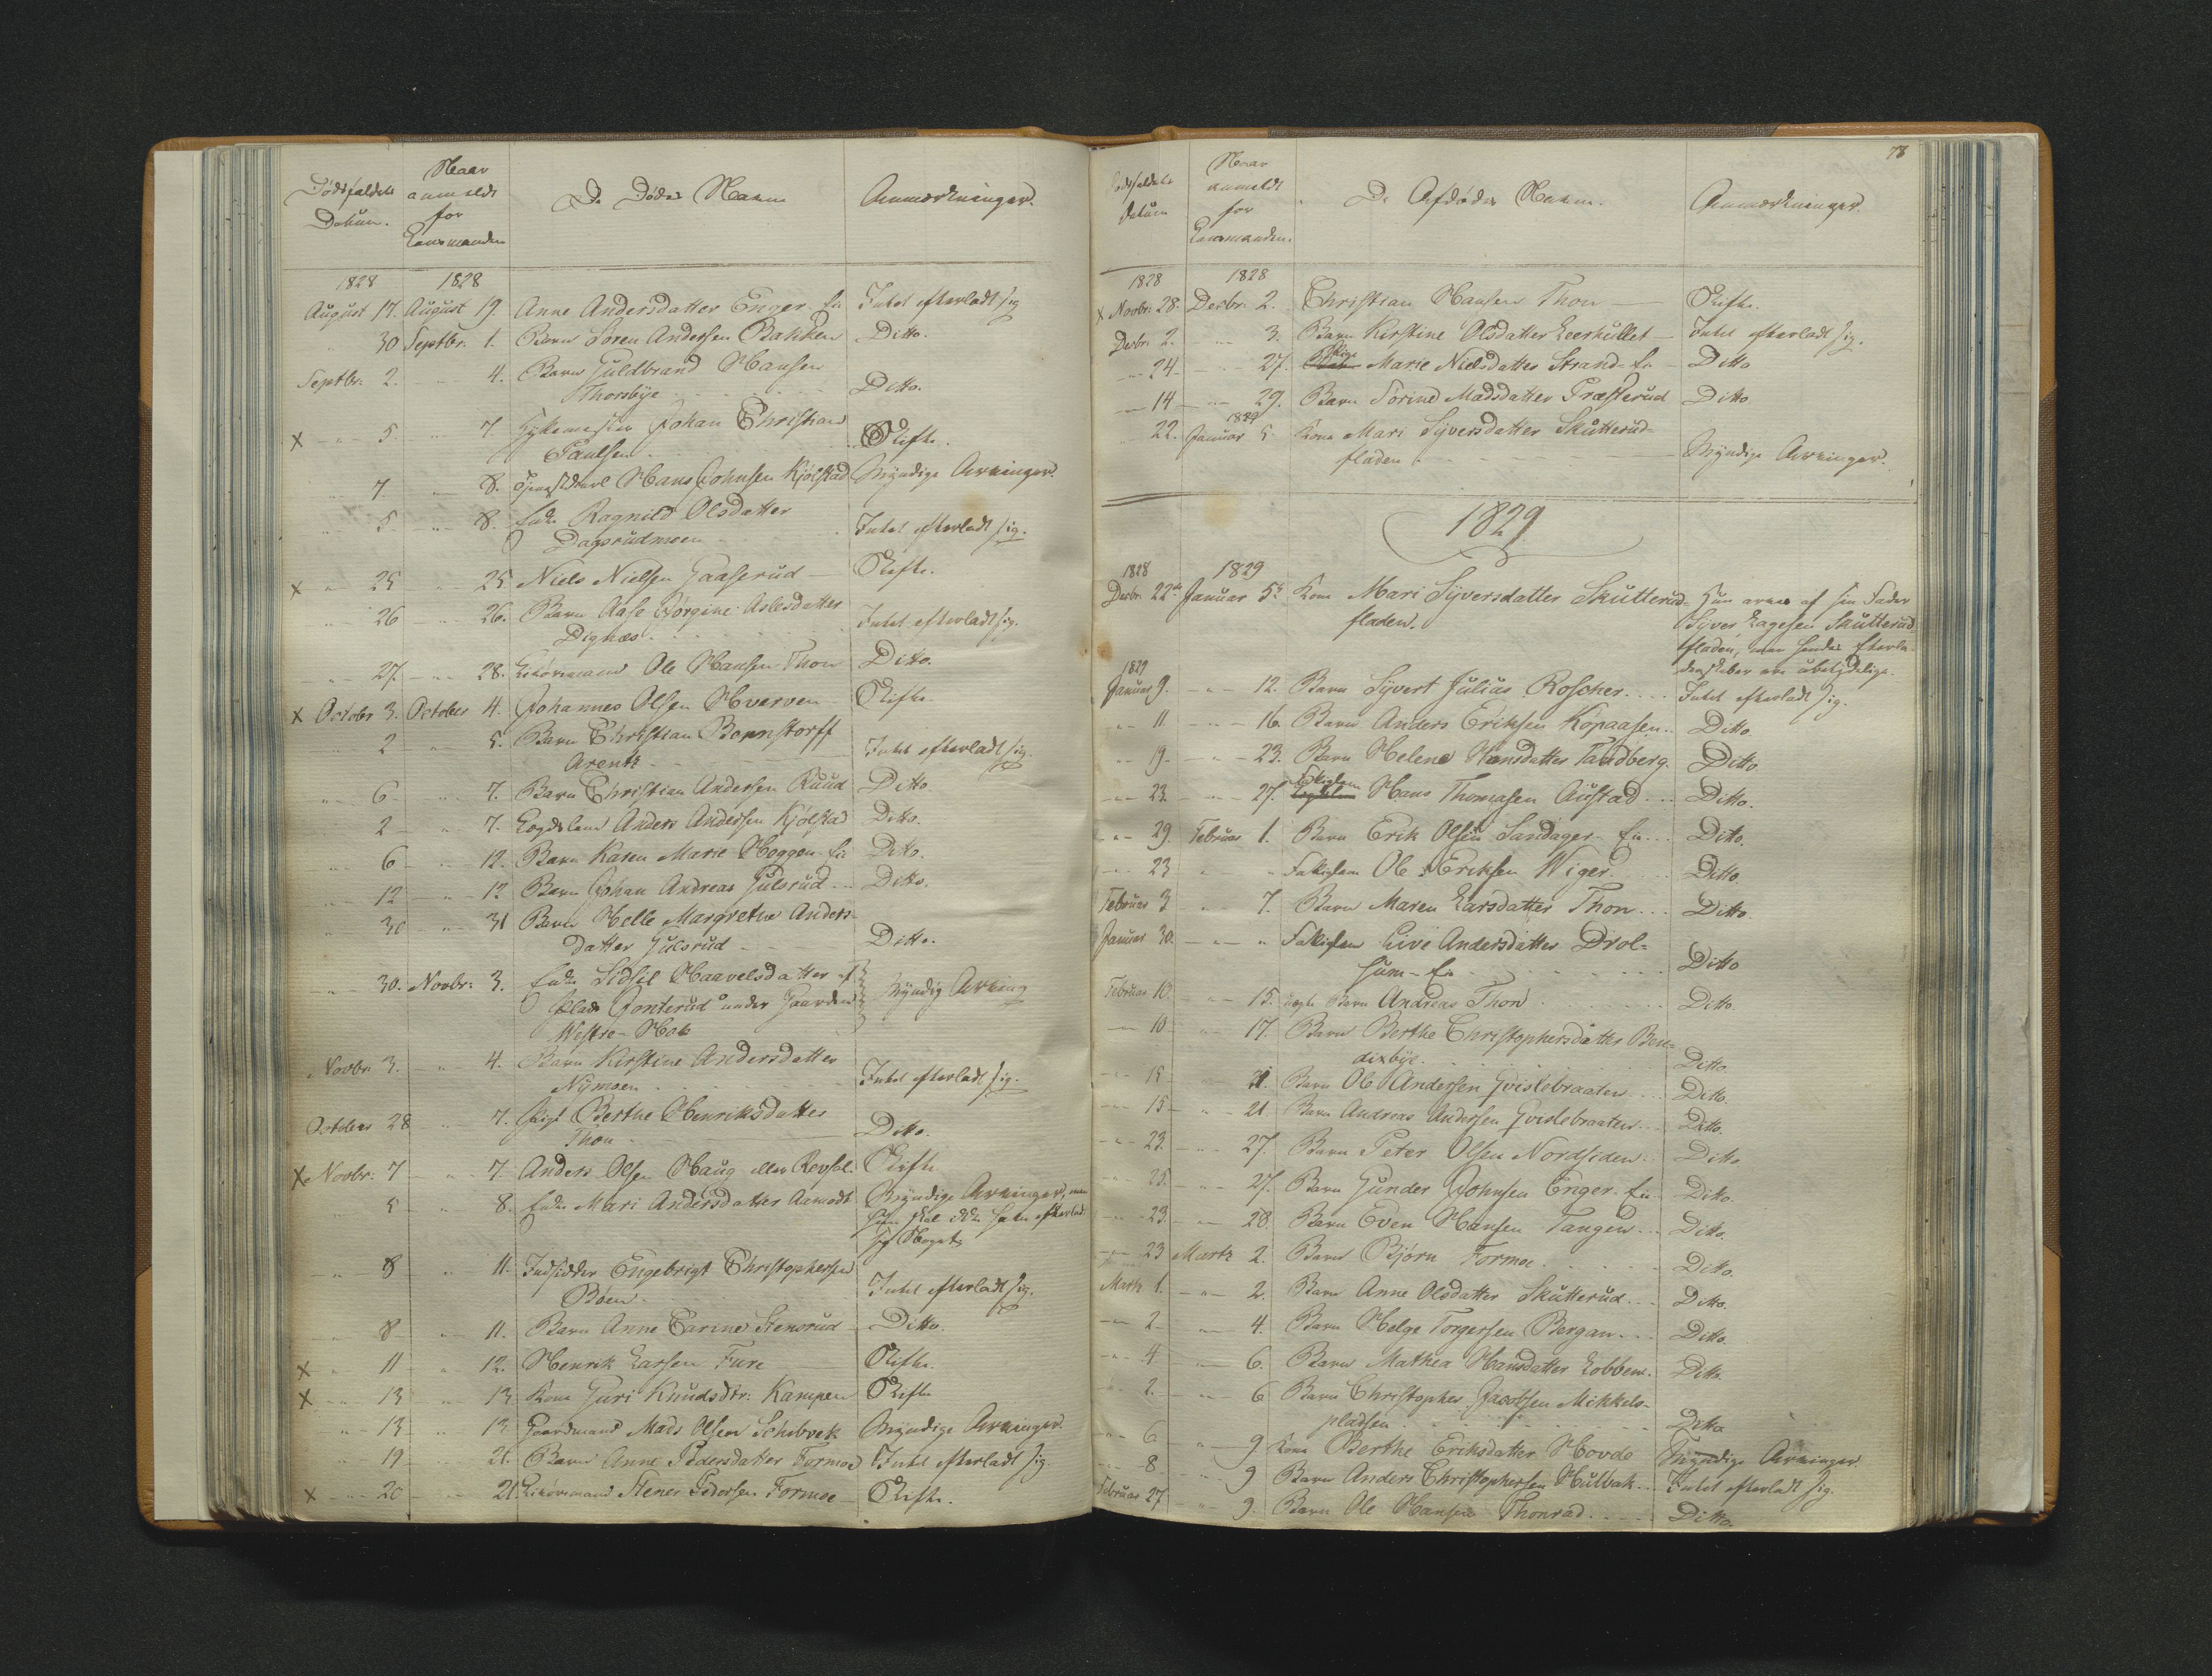 Dødsfaldets Datum. Naar anmeldt for Lensmanden De Dødes Navn Anmærkninger.
1828 1828
August 17. August 19. Anne Andersdatter Enger-Ei Intet efterladt sig
30 Septbr. 1. Barn Søren Andersen Bakken Ditto.
Septbr. 2. 4. Barn Guldbrand Hansen
Thorsbye Ditto.
x 5. 7. Johan Christian
Paulsen Skifte.
7. 8. Hans Johnsen Kjølstad Myndige Arvinger.
5 8. Enke Ragnild Olsdatter
Dagsrudmoen Intet efterladt sig.
x 25 25. Niels Nielsen Gaaserud Skifte.
26 26. Barn Aase Jørgine Aslesdatter
Dignæs. Intet efterladt sig.
27. 28. Ole Hansen Thon Ditto.
x Octobr 3. October 4. Johannes Olsen Hverven Skifte
2 5. Barn Christian Bernstorff
Arentz Intet efterladt sig.
6 7. Barn Christian Andersen Ruud Ditto
2 7. Logdslem Anders Andersen Kjølstad Ditto.
6 12. Barn Karen Marie Hoggen-Ei Ditto.
12 12 Barn Johan Andreas Gulsrud Ditto.
30 31 Barn Helle Margrethe Anders-
datter Gulsrud Ditto.
30. Novbr. 3. Enke Sidsil Haavelsdatter
Plads Jonterud under Gaarden Myndig Arving
Westre-Hok
Novbr. 3. 4. Barn Kirstine Andersdatter
Nymoen Intet efterladt sig.
October 28 7. Pige Berthe Henriksdatter
Thon Ditto.
x Novbr. 7 7. Anders Olsen Haug eller Revsol. Skifte
5 8. Enke Mari Andersdatter Aamodt Myndige Arvinger, men
skal ikke have efterladt
sig Noget
8 11. Indsidder Engebrigt Christophersen
Bøen Intet efterladt sig.
8 11. Barn Anne Carine Stensrud Ditto.
x 11 12. Henrik Larsen Fure Skifte.
x 13 13 Kone Guri Knudsdtr. Kampen Skifte
13 13 Gaardmand Mads Olsen Schibvek Myndige Arvinger.
19 21. Barn Anne Pedersdatter Formoe Intet efterladt sig.
x 20 21. Stener Pedersen Formoe Skifte.
78
Dødsfaldets Datum Naar anmeldt for Lensmanden. De Afdødes Navn. Anmærkninger.
1828 1828
x Novbr. 28. Decbr. 2. Christian Hansen Thon Skifte.
Decbr. 2. 3. Barn Kirstine Olsdatter Leerhullet Intet efterladt sig.
24 27. Marie Nielsdatter Strand-Ei Ditto
14 29. Barn Torine Madsdatter Præsterud Ditto
1829
22. Januar 5 Kone Mari Syversdatter Skutterud-
fladen. Myndige Arvinger.
1829
1828 1829
Decbr. 22de Januar 5te Kone Mari Syversdatter Skutterud- Hun arves af sin Fader
fladen. Syver Lagesen Skutterud-
fladen, men hendes Efterla-
denskaber ere ubetydelige.
1829
Januar 9. 12. Barn Syvert Julius Roscher. Intet efterladt sig.
11 16. Barn Anders Eriksen Kopaasen. Ditto.
19. 23. Barn Helene Hansdatter Tandberg. Ditto
23. 27. Hans Thomasen Austad Ditto.
29. Februar 1. Barn Erik Olsen Sandager-Ei Ditto.
23 Ole Eriksen Wiger. Ditto.
Februar 3 7. Barn Maren Larsdatter Thon Ditto.
Januar 30. Live Andersdatter Drol-
sum-Ei Ditto
Februar 10 15. uægte Barn Andreas Thon Ditto.
10 17. Barn Berthe Christophersdatter Ben-
dixbye. Ditto.
15 21. Barn Ole Andersen Qvislebraaten Ditto.
15 21 Barn Andreas Andersen Qvislebraaten Ditto.
23. 27. Barn Peter Olsen Nordsiden Ditto
25. 27. Barn Gunder Johnsen Enger-Ei Ditto.
23. 28 Barn Even Hansen Tangen Ditto.
23 Martz 2. Barn Bjørn Formoe Ditto.
Martz 1. 2. Barn Anne Olsdatter Skutterud Ditto.
2 4. Barn Helge Torgersen Bergan Ditto.
4 6. Barn Mathea Hansdatter Lobben. Ditto.
2. 6 Barn Christopher Jacobsen Mikkels-
pladsen Ditto
6 9 Kone Berthe Eriksdatter Hovde Myndige Arvinger.
8. 9 Barn Anders Christophersen Hulbak Intet efterladt sig.
Februar 27 9. Barn Ole Hansen Thonrad Ditto.